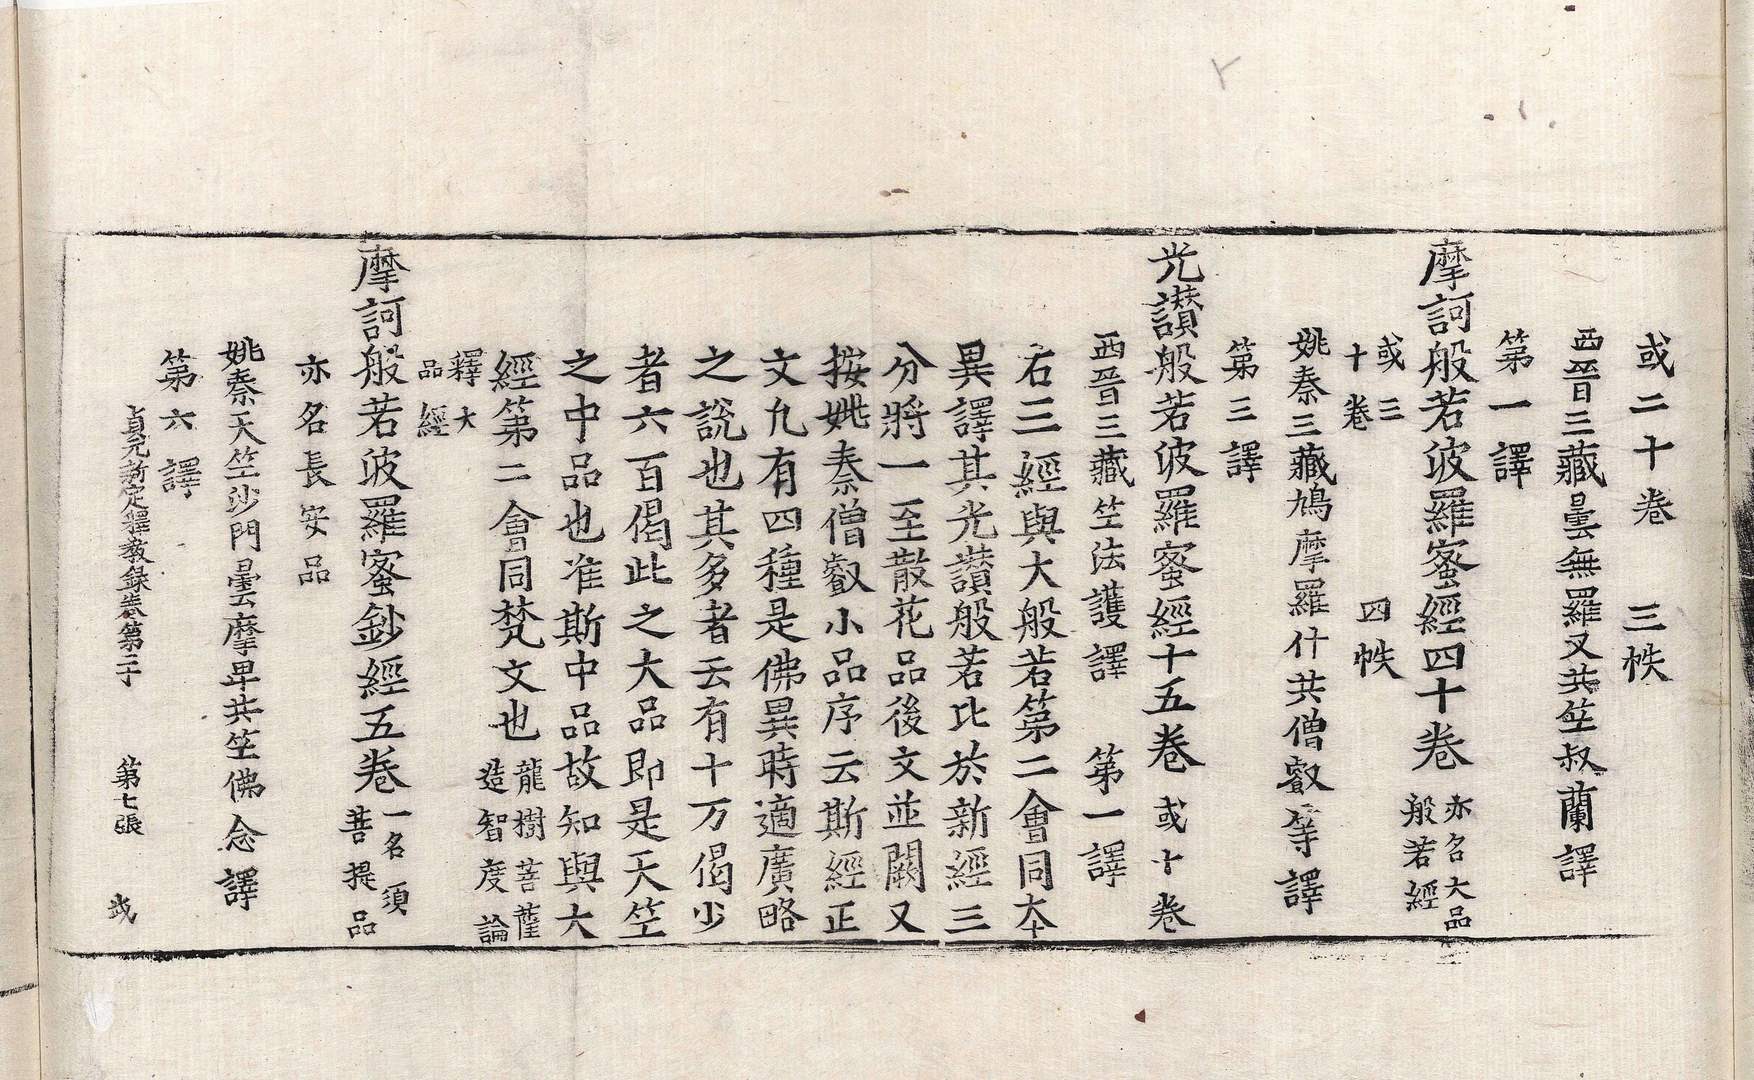 或二十卷　三帙
西晉三藏曇無羅叉共竺叔蘭譯
第一譯
摩訶般若波羅蜜經四十卷亦名大品般若經
或三十卷　四帙
姚秦三藏鳩摩羅什共僧叡等譯
第三譯
光讃般若波羅蜜經十五卷或十卷
西晉三藏竺法護譯　第一譯
右三經與大般若第二會同本
異譯其光讃般若比於新經三
分將一至散花品後文並闕又
按姚秦僧叡小品序云斯經正
文凡有四種是佛異時適廣略
之說也其多者云有十万偈少
者六百偈此之大品即是天竺
之中品也准斯中品故知與大
經第二會同梵文也龍樹菩薩造智度論
釋大品經
摩訶般若波羅蜜鈔經五卷一名須菩提品
亦名長安品
姚秦天竺沙門曇摩卑共竺佛念譯
第六譯
貞元新定釋教錄卷第二十　第七張　㦯